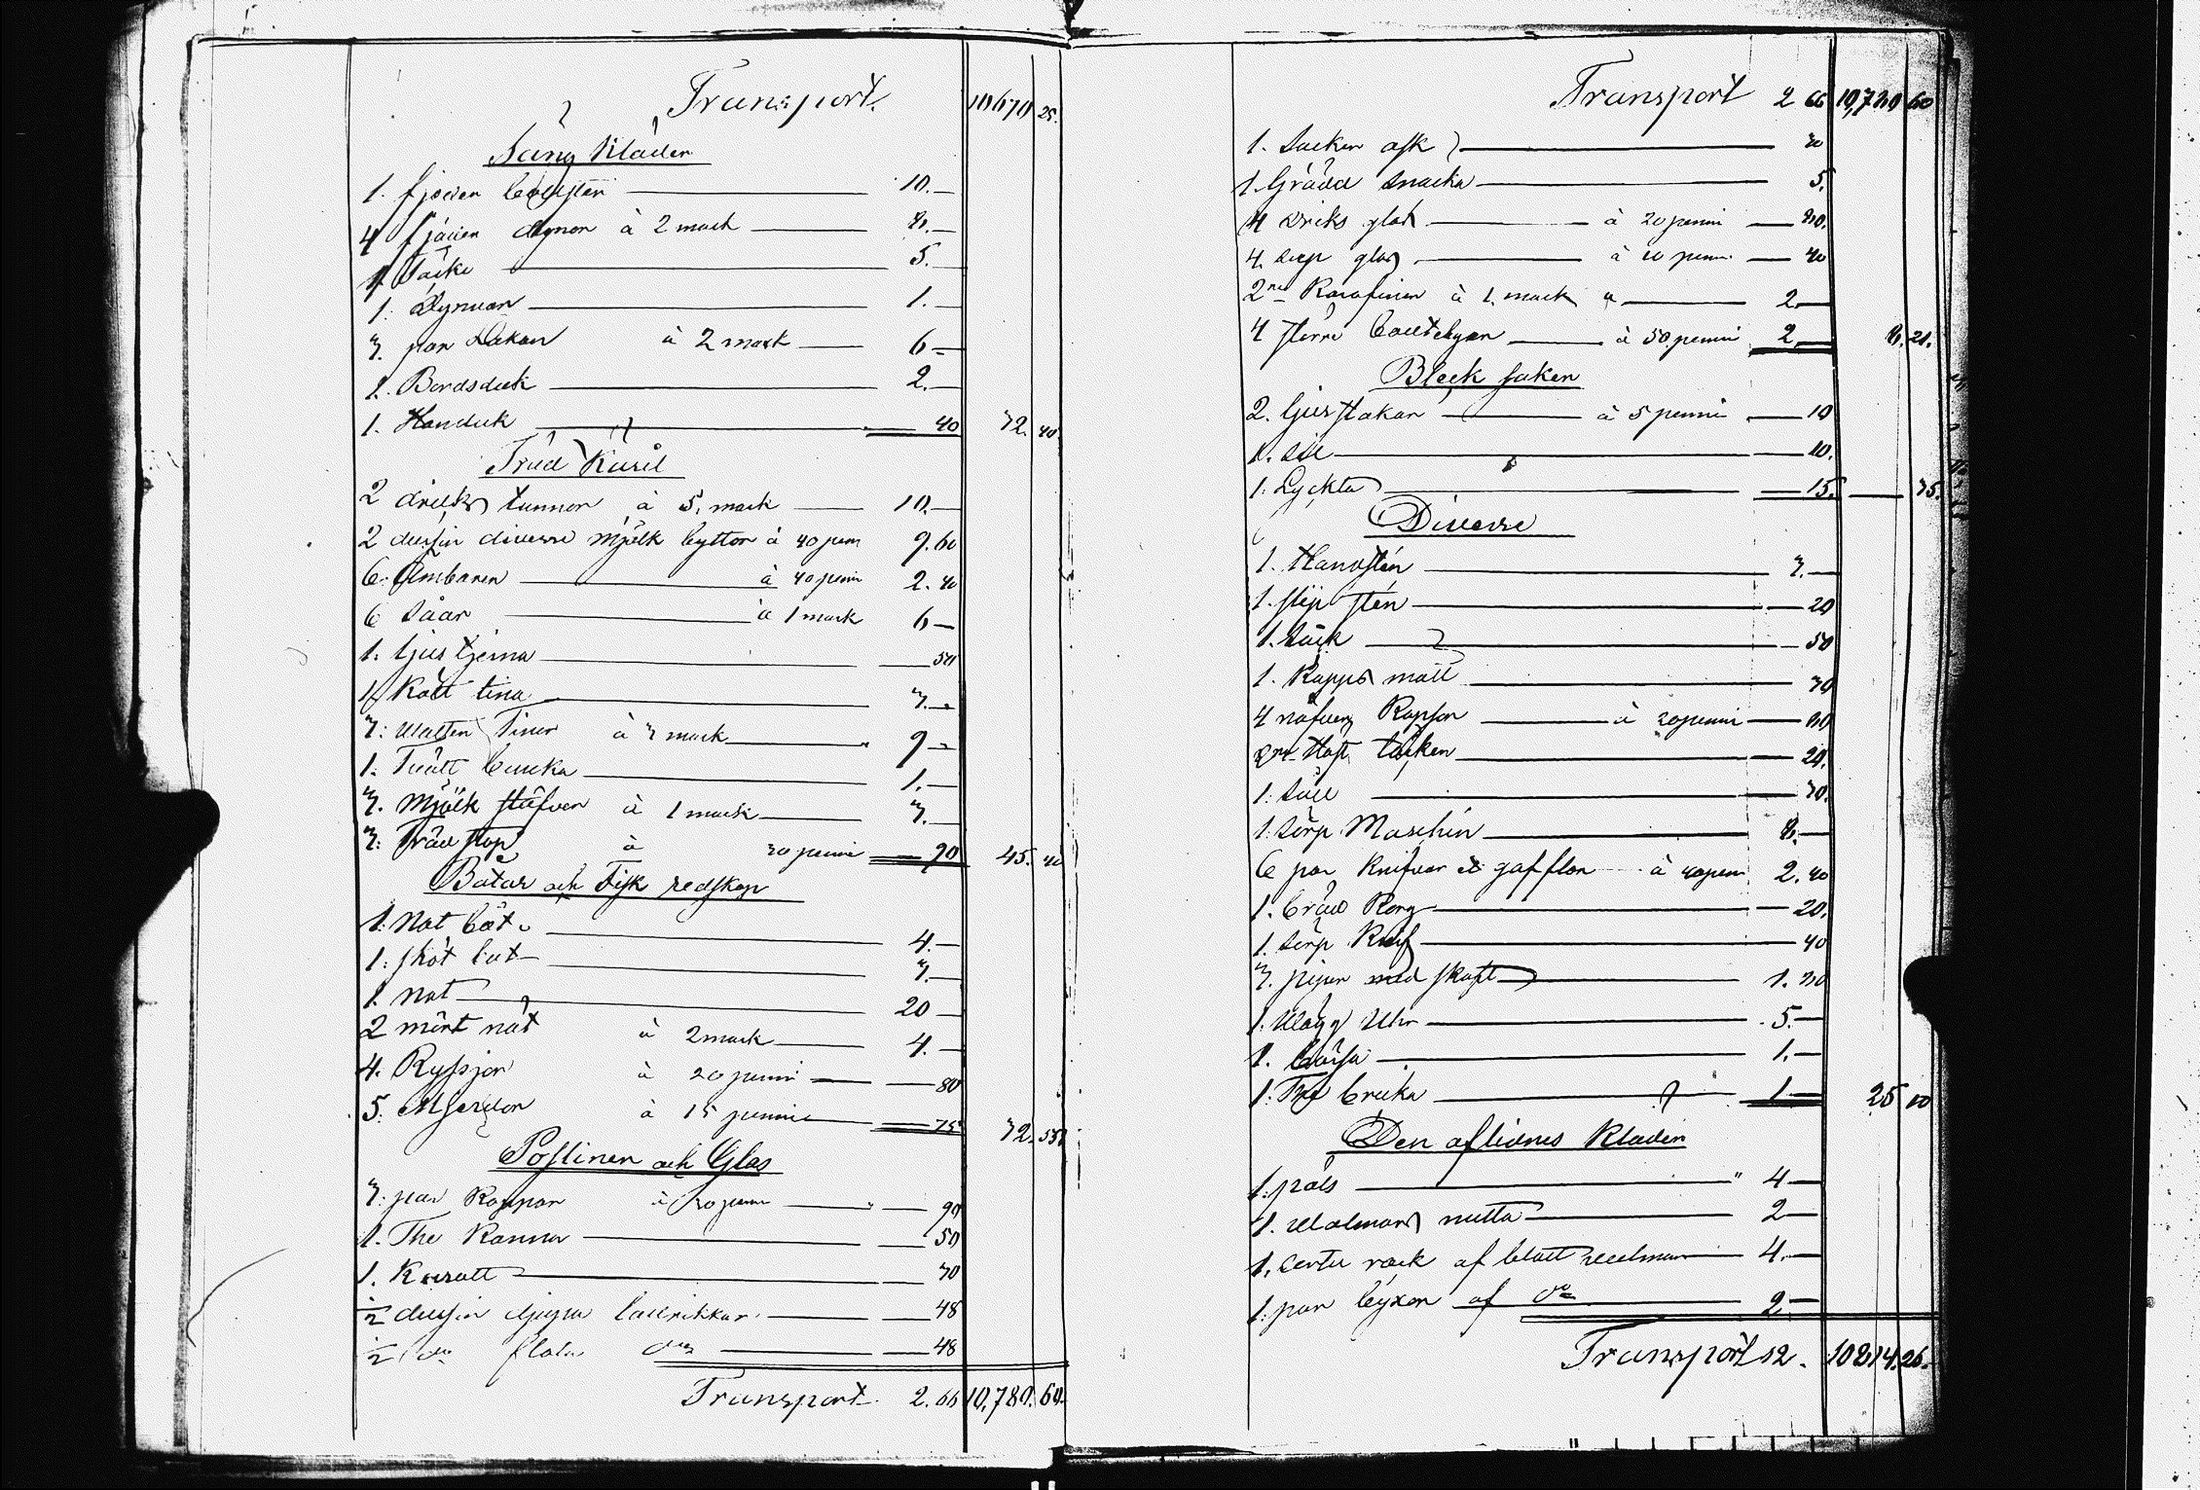 Transport. 10670 25.
Säng Kläder
1. fjäder bolster 10.—
4 fjäder dynor à 2 mark 8.—
1 Täcke 5.—
1. Dynvar 1.—
3. par Lakan à 2 mark 6—
1. Bordsduk 2.—
1. Handuk 40 32. 40
Träd Käril
2 dricks tunnor à 5. mark 10.—
2 dussin diverse mjölk byttor à 40 peni 9.60
6. Ämbaren à 40 penni 2.40
6 Såar à 1 mark 6—
1. ljus tjerna 50
1. Kött tina 3.—
3. Tinor à 3 mark 9—
1. Tvätt bunka 1.—
3. Mjölk stäfvor à 1 mark 3.—
3. Träd stop à 30 penni 90 45. 40
Båtar och Fisk redskap
1. Not båt 4.—
1. sköt båt 3.—
1. not 20—
2 mört nät à 2 mark 4.—
4. Ryssjor à 20 penni 80
5. Mjerdor à 15 penni 75 32. 55
Posliner och Glas
3. par Koppar à 30 penni 90
1. The Kanna 50
1. Karott 30
½ dussin djupa tallrikkar 48
½ do flata do 48
Transport. 2.66 10,780. 60.
Transport 2 66 10,780 60
1. Socker ask 30
1. Grädd snäcka 5.
4 dricks glas à 20 penni 80.
4. sup glas à 10 penni 40
2ne Karafiner à 1. mark 2—
4 större bouteljer à 50 penni 2.— 8. 21.
Bleck saker
2. ljusstakar à 5 penni 10
1. Sil 10.
1. Lyckta 15. 35.
Diverse
1. Handsten 3.—
1. slip sten 20
1. Säck 50
1. Kappa mått 30
4 näfver Kopsor à 20 penni 80
2ne Häst täcken 20.
1. Såll 30.
1. Sörp Maschin 8.—
6 par Knifvar & gafflor à 40 peni 2.40
1. bröd Korg 20.
1. Sörp Knif 40
3. pipor med skaft 1.80
1. Vägg Uhr 5.—
1. bössa 1.—
1. bricka 1— 25 10
Den aflidnes Kläder
1. päls 4—
1. Valmars mutta 2—
1. Sertu rock af blått valmar 4.—
1. par byxor af do 2.—
Transport 12. 10814. 26.